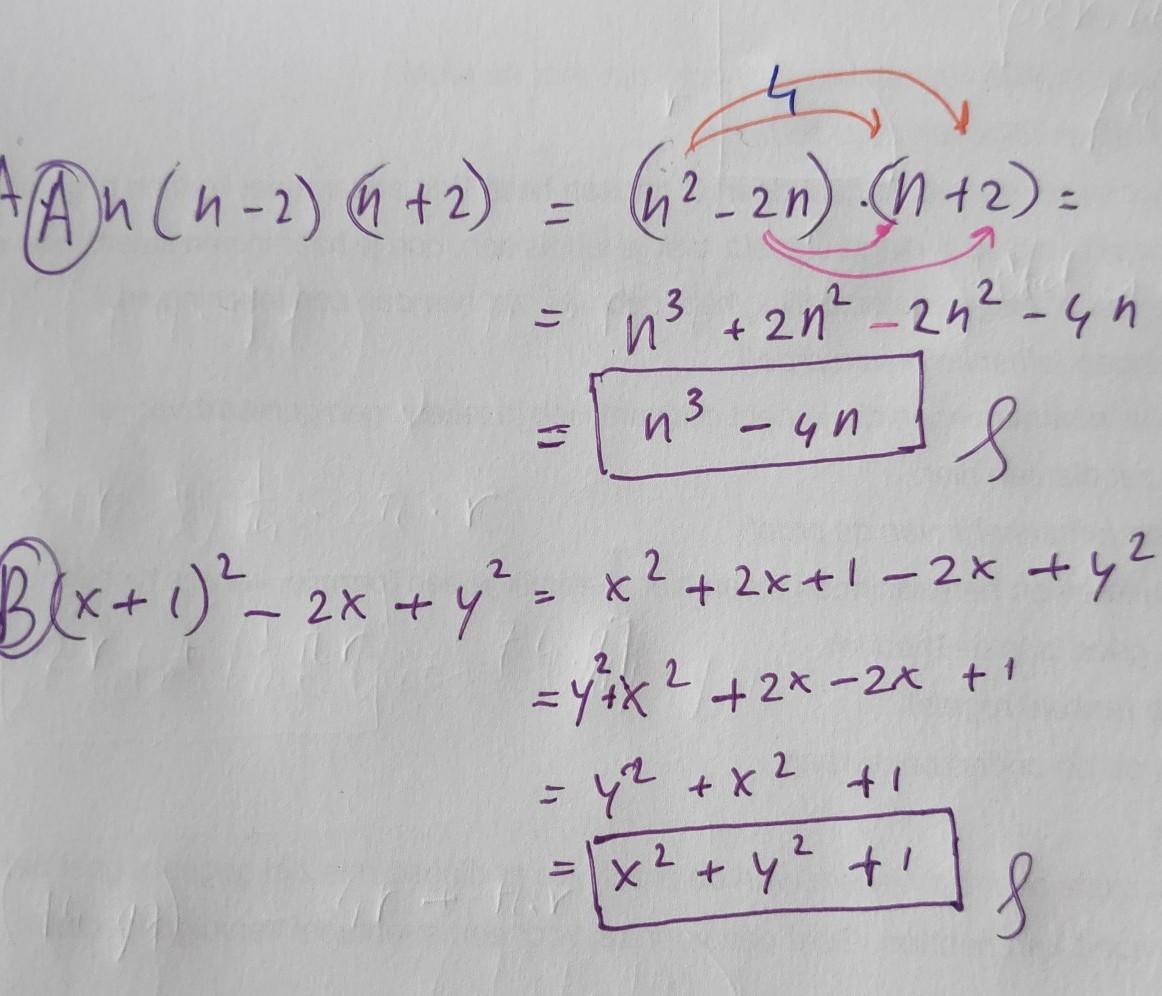 4
A n(n-2)(n+2) = (n²-2n)·(n+2)=
= n³ +2n² -2n² -4n
= n³ - 4n
B (x+1)² - 2x + y² = x² +2x+1-2x +y²
=y²+x² +2x-2x +1
= y² +x² +1
= x² + y² +1